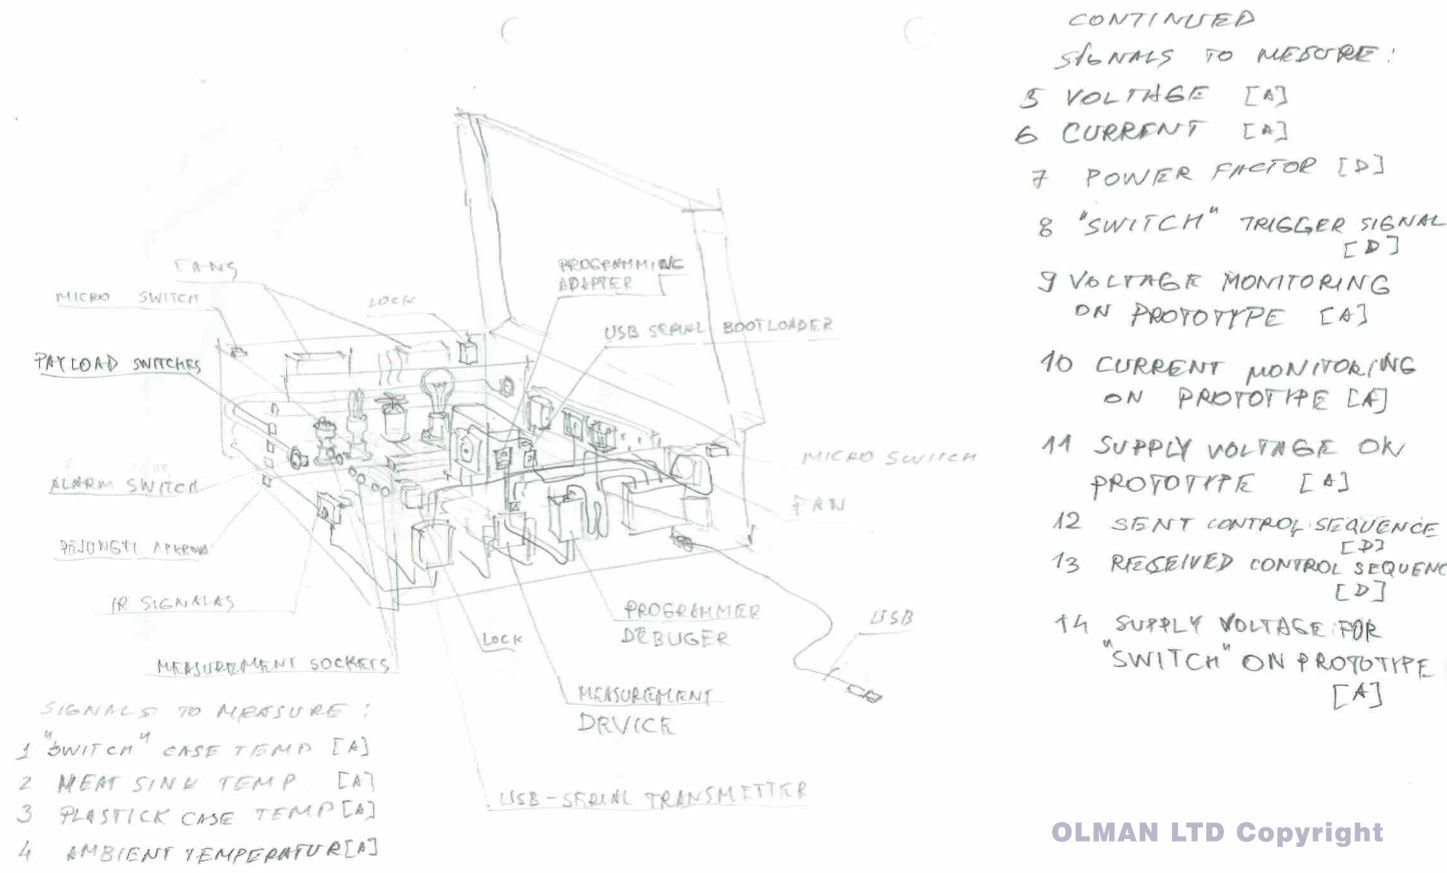 FANS
MICRO SWITCH
LOCK
PROGRAMMING
ADAPTER
USB SERIAL BOOTLOADER
PAYLOAD SWITCHES
ALARM SWITCH
MICRO SWITCH
FAN
IR SIGNALAS
LOCK
PROGRAMMER
DEBUGER
USB
MEASUREMENT SOCKETS
MEASUREMENT
DEVICE
USB-SERIAL TRANSMETTER
SIGNALS TO MEASURE :
1 "SWITCH" CASE TEMP [A]
2 HEAT SINK TEMP. [A]
3 PLASTICK CASE TEMP [A]
4 AMBIENT TEMPERATUR [A]
CONTINUED
SIGNALS TO MESURE :
5 VOLTAGE [A]
6 CURRENT [A]
7 POWER FACTOR [D]
8 "SWITCH" TRIGGER SIGNAL
[D]
9 VOLTAGE MONITORING
ON PROTOTYPE [A]
10 CURRENT MONITORING
ON PROTOTYPE [A]
11 SUPPLY VOLTAGE ON
PROTOTYPE [A]
12 SENT CONTROL SEQUENCE
[D]
13 RECEIVED CONTROL SEQUENC
[D]
14 SUPPLY VOLTAGE FOR
"SWITCH" ON PROTOTYPE
[A]
OLMAN LTD Copyright